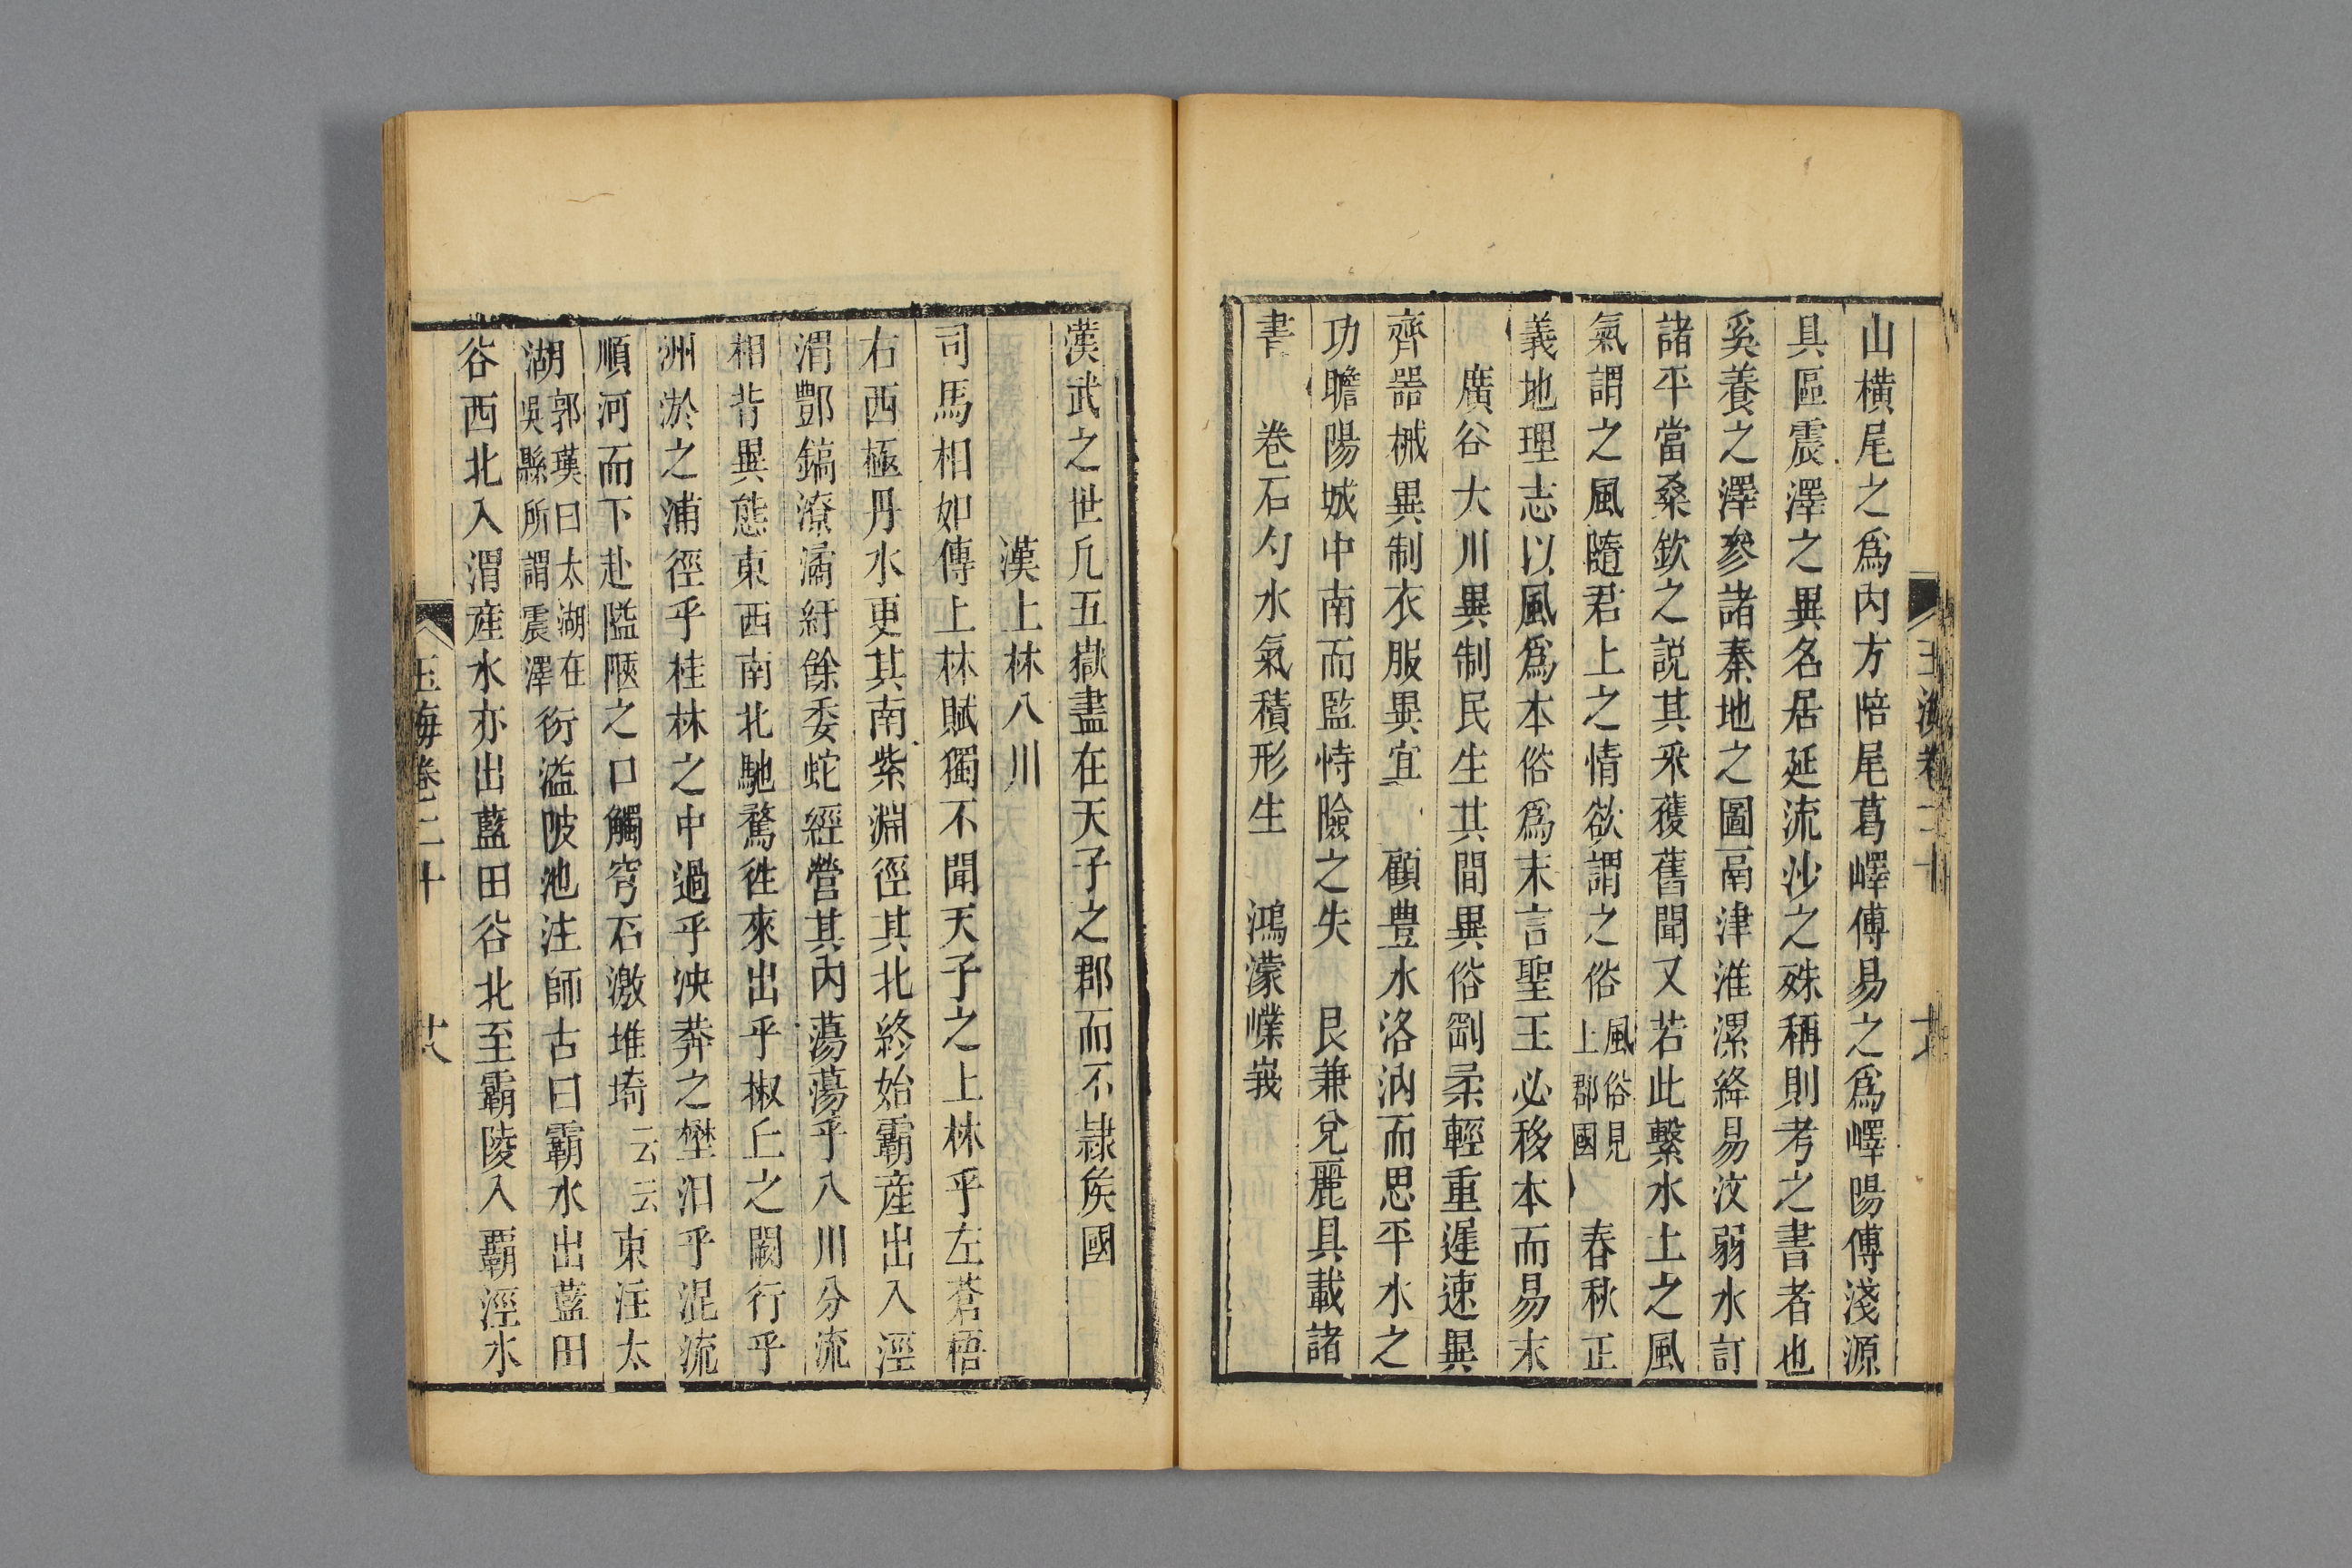 山橫尾之爲内方陪尾葛嶧傅易之爲嶧陽傅淺源
具區震澤之異名居延流沙之殊稱則考之書者也
奚養之澤參諸秦地之圖鬲津淮漯絳易汶弱水訂
諸平當桑欽之説其釆獲舊聞又若此繫水土之風
氣謂之風隨君上之情欲謂之俗風俗見上郡國 春秋正
義地理志以風爲本俗爲末言聖王必移本而易末
廣谷大川異制民生其間異俗剛柔輕重遲速異
齊噐械異制衣服異宜 顧豊水洛汭而思平水之
功瞻陽城中南而監恃險之失 艮兼兌麗具載諸
書 卷石勺水氣積形生 鴻濛嶫峩
漢武之世凢五嶽盡在天子之郡而不隷矦國
漢上林八川
司馬相如傳上林賦獨不聞天子之上林乎左蒼梧
右西極丹水更其南紫淵徑其北終始霸產出入涇
渭酆鎬潦潏紆餘委蛇經營其内蕩蕩乎八川分流
相背異態東西南北馳騖徃來出乎椒丘之闕行乎
洲淤之浦徑乎桂林之中過乎泱莽之壄汩乎混流
順河而下赴隘陿之口觸穹石激堆埼云云東注太
湖郭璞曰太湖在吳縣所謂震澤衍溢陂池注師古曰霸水出藍田
谷西北入渭產水亦出藍田谷北至霸陵入霸涇水
玉海卷二十